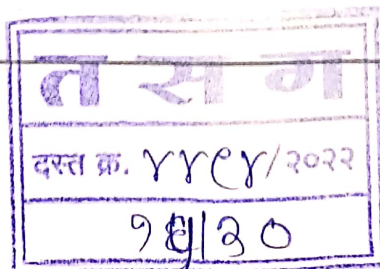 त स ग
दस्त क्र. ४४९४/२०२२
/३०